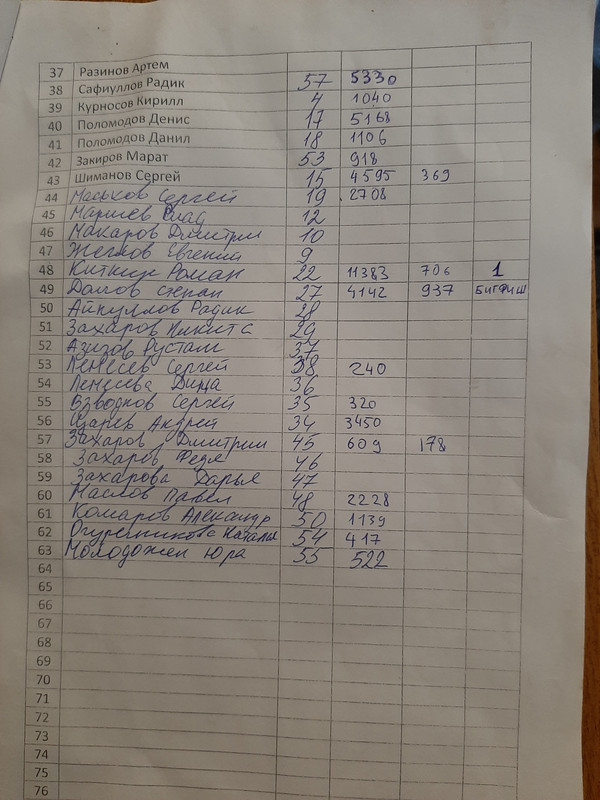 37 Разинов Артем
38 Сафиуллов Радик 57 5330
39 Курносов Кирилл 4 1040
40 Поломодов Денис 17 5168
41 Поломодов Данил 18 1106
42 Закиров Марат 53 918
43 Шиманов Сергей 15 4595 369
44 Маськов Сергей 19 2708
45 Влад 12
46 Макаров Дмитрий 10
47 Жеглов Евгений 9
48 Роман 22 11383 706 1
49 Долгов Степан 27 4142 937 БИГФИШ
50 Радик 28
51 Захаров Никита 29
52 Азизов Рустам 37
53 Сергей 38 240
54 Дина 36
55 Взводнов Сергей 35 320
56 Царев Андрей 34 3450
57 Захаров Дмитрий 45 609 178
58 Захаров Федя 46
59 Захарова Дарья 47
60 Маслов Павел 48 2228
61 Комаров Александр 50 1139
62 Огуречникова Наталья 54 417
63 Молодожен Юра 55 522
64
65
66
67
68
69
70
71
72
73
74
75
76